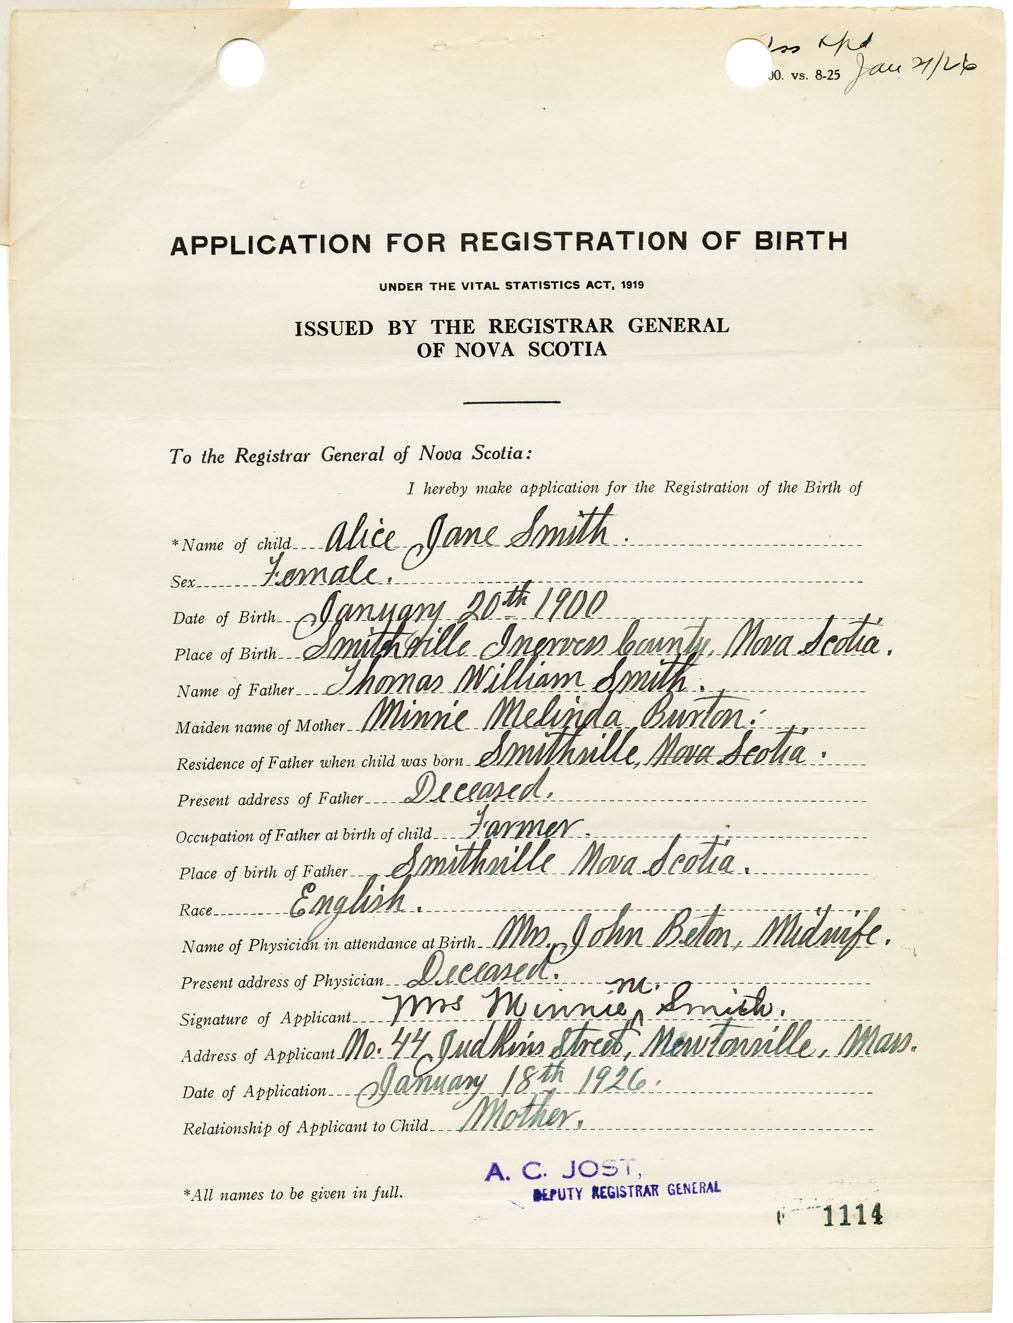 00. vs. 8-25
Jan 21/26
APPLICATION FOR REGISTRATION OF BIRTH
UNDER THE VITAL STATISTICS ACT, 1919
ISSUED BY THE REGISTRAR GENERAL
OF NOVA SCOTIA
To the Registrar General of Nova Scotia:
I hereby make application for the Registration of the Birth of
*Name of child Alice Jane Smith.
Sex Female.
Date of Birth January 20th 1900
Place of Birth Smithville Inverness County, Nova Scotia.
Name of Father Thomas William Smith.
Maiden name of Mother Minnie Melinda Burton.
Residence of Father when child was born Smithville, Nova Scotia.
Present address of Father Deceased.
Occupation of Father at birth of child Farmer.
Place of birth of Father Smithville Nova Scotia.
Race English.
Name of Physician in attendance at Birth Mrs. John Beton, Midwife.
Present address of Physician Deceased.
Signature of Applicant Mrs Minnie M. Smith.
Address of Applicant No. 44 Judkins Street, Newtonville, Mass.
Date of Application January 18th 1926.
Relationship of Applicant to Child Mother.
A. C. JOST,
DEPUTY REGISTRAR GENERAL
*All names to be given in full.
1114